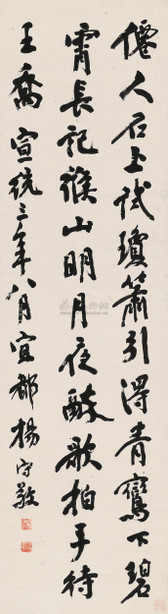 僊人石上試瓊簫引得青鸞下碧
霄長記緱山明月夜酣歌拍手待
王喬宣統三年八月宜都楊守敬